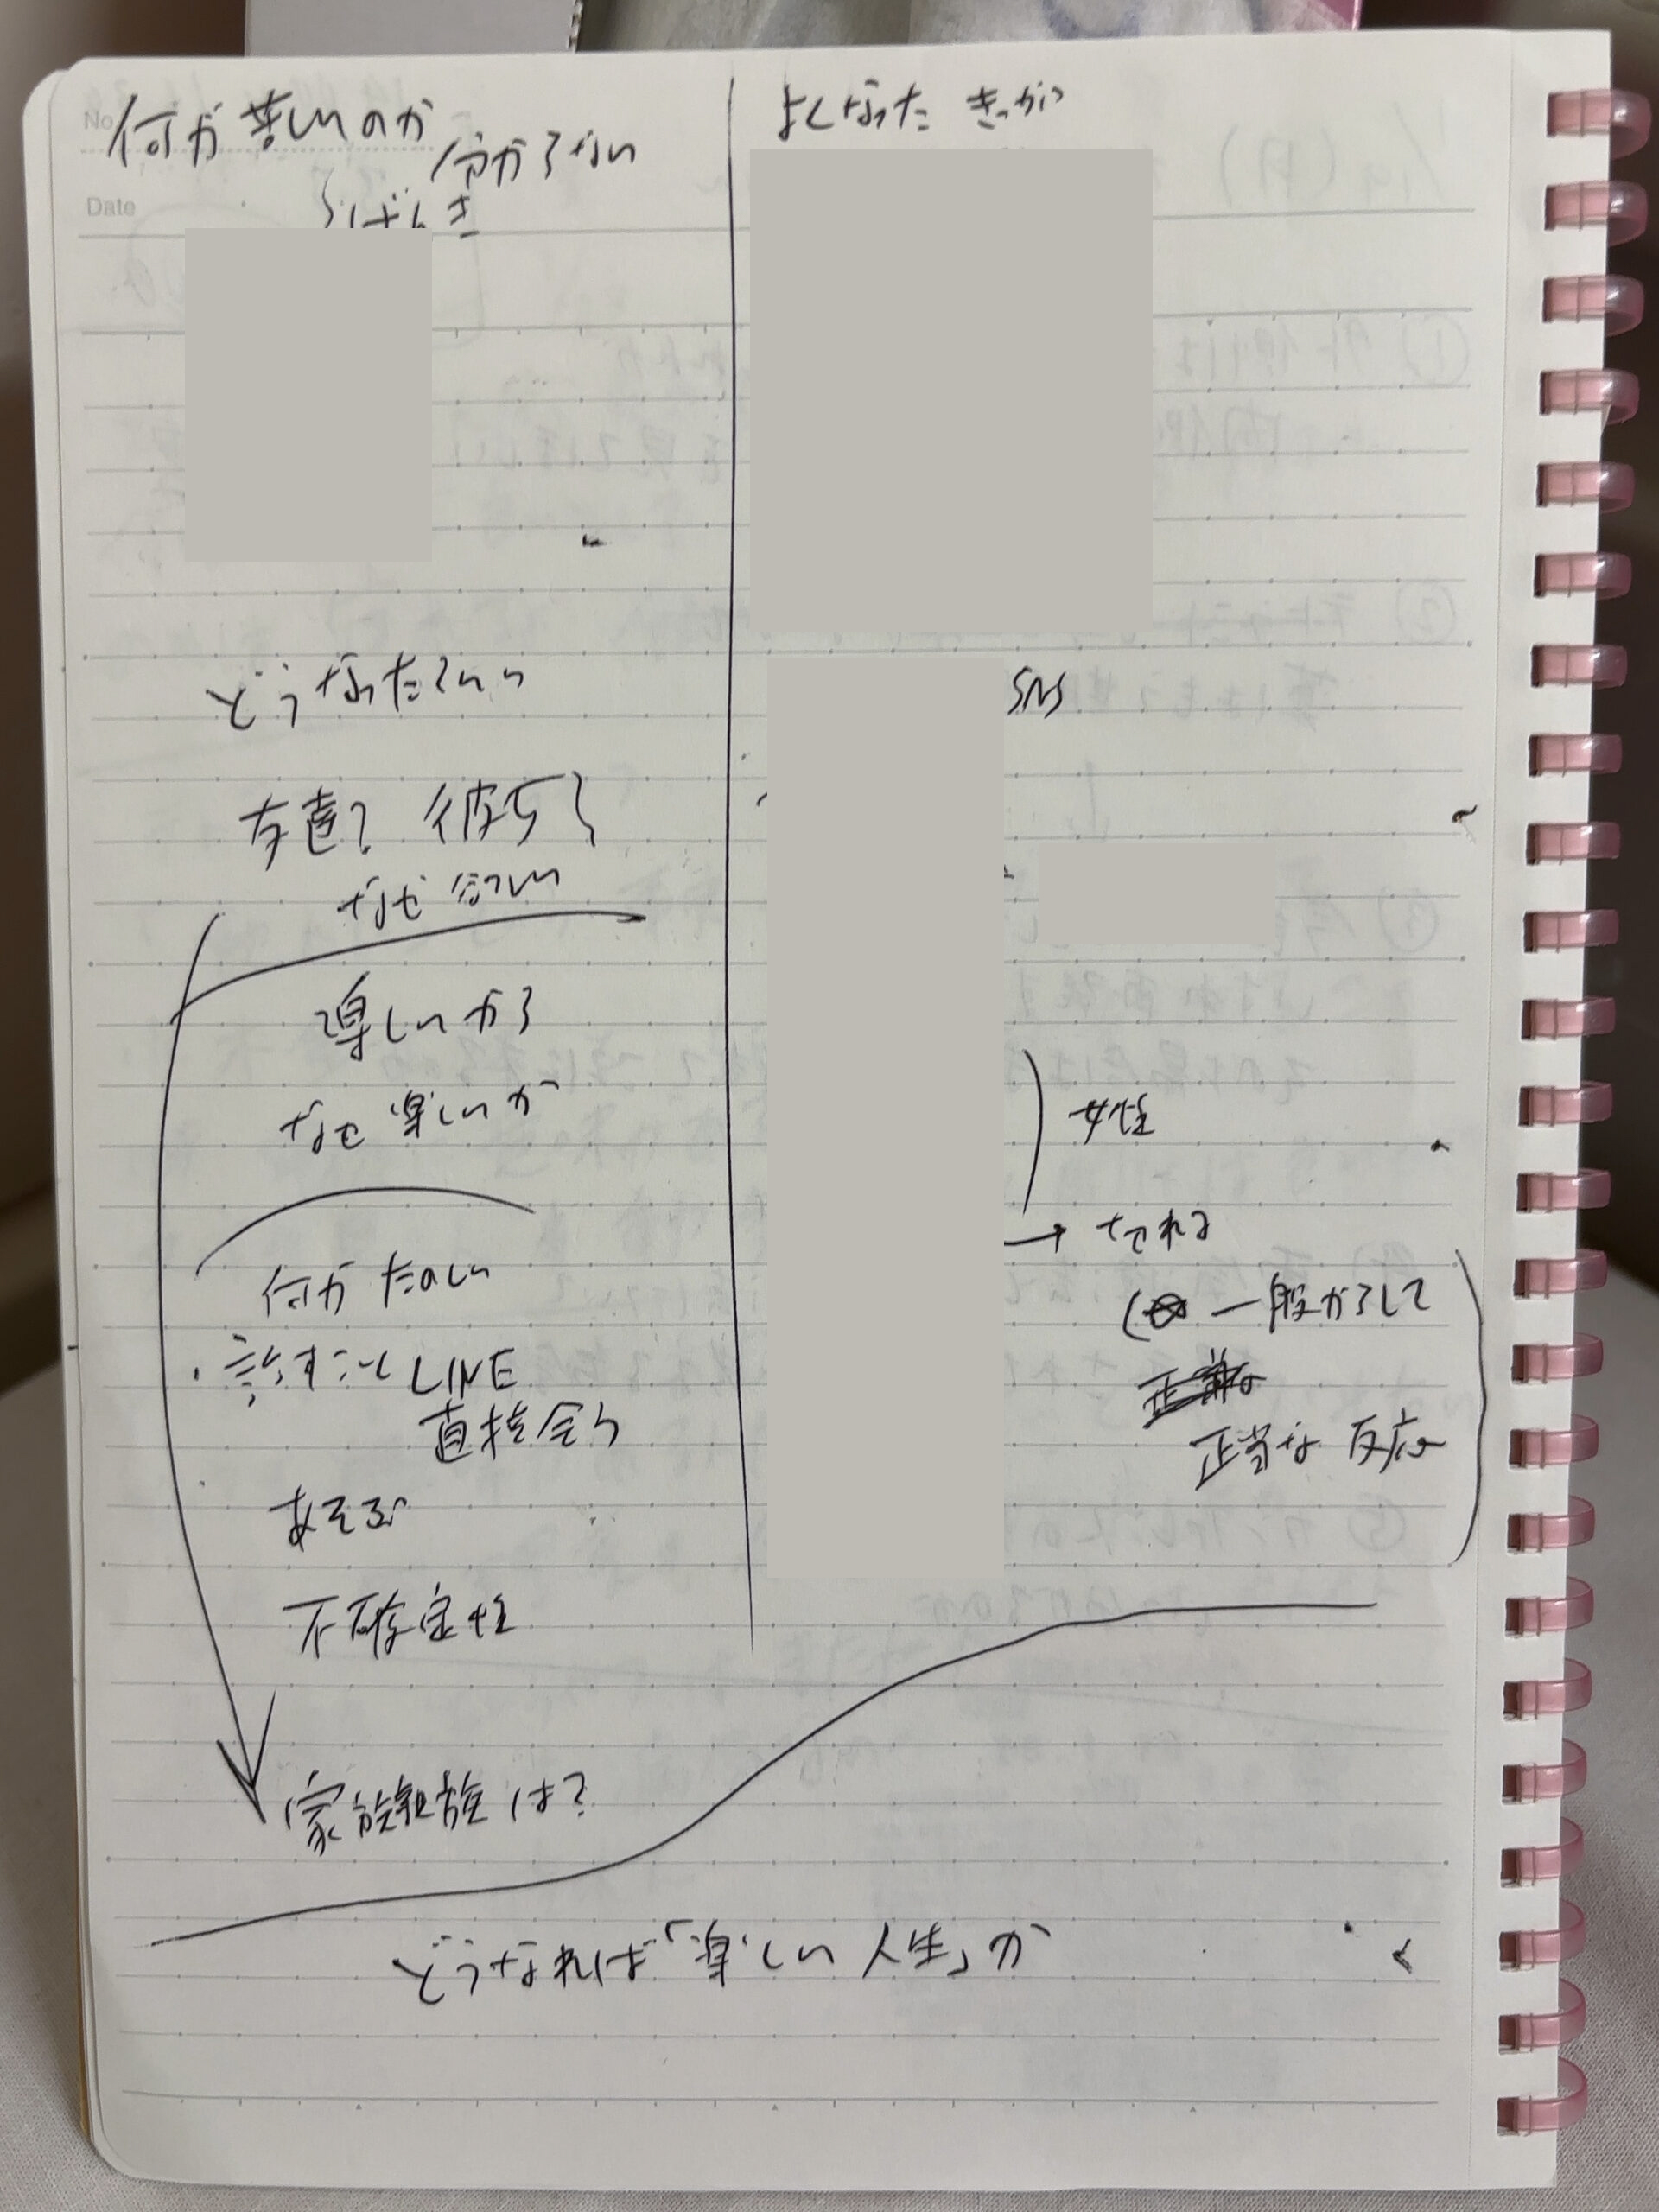 No.
Date
何が苦しいのか
分からない
どうなったらいい
友達? 彼女?
なぜ欲しい
楽しいから
なぜ楽しいか
何がたのしい
・話すこと LINE
直接会う
あそぶ
不確定性
家族親族は?
よくなった きっかけ
SNS
女性
→ キれる
一般からして
正当な 反応
どうなれば「楽しい人生」か